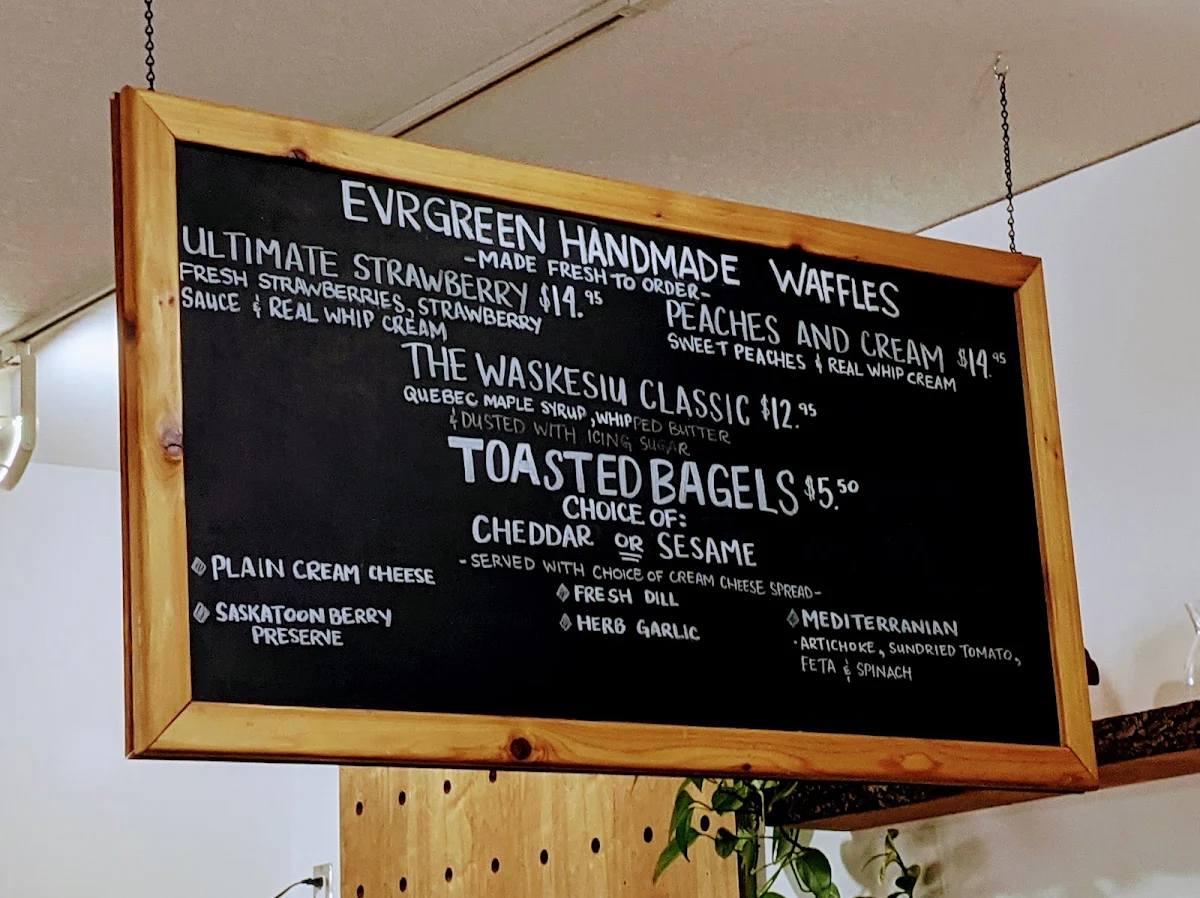 EVRGREEN HANDMADE WAFFLES
-MADE FRESH TO ORDER-
ULTIMATE STRAWBERRY $14.95
FRESH STRAWBERRIES, STRAWBERRY
SAUCE & REAL WHIP CREAM
PEACHES AND CREAM $14.95
SWEET PEACHES & REAL WHIP CREAM
THE WASKESIU CLASSIC $12.95
QUEBEC MAPLE SYRUP, WHIPPED BUTTER
& DUSTED WITH ICING SUGAR
TOASTED BAGELS $5.50
CHOICE OF:
CHEDDAR OR SESAME
-SERVED WITH CHOICE OF CREAM CHEESE SPREAD-
PLAIN CREAM CHEESE
SASKATOON BERRY
PRESERVE
FRESH DILL
HERB GARLIC
MEDITERRANIAN
·ARTICHOKE, SUNDRIED TOMATO,
FETA & SPINACH